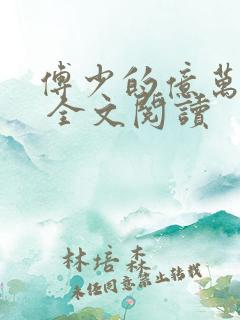 傅少的億萬
全文閱讀
林培森
未經同意禁止轉載